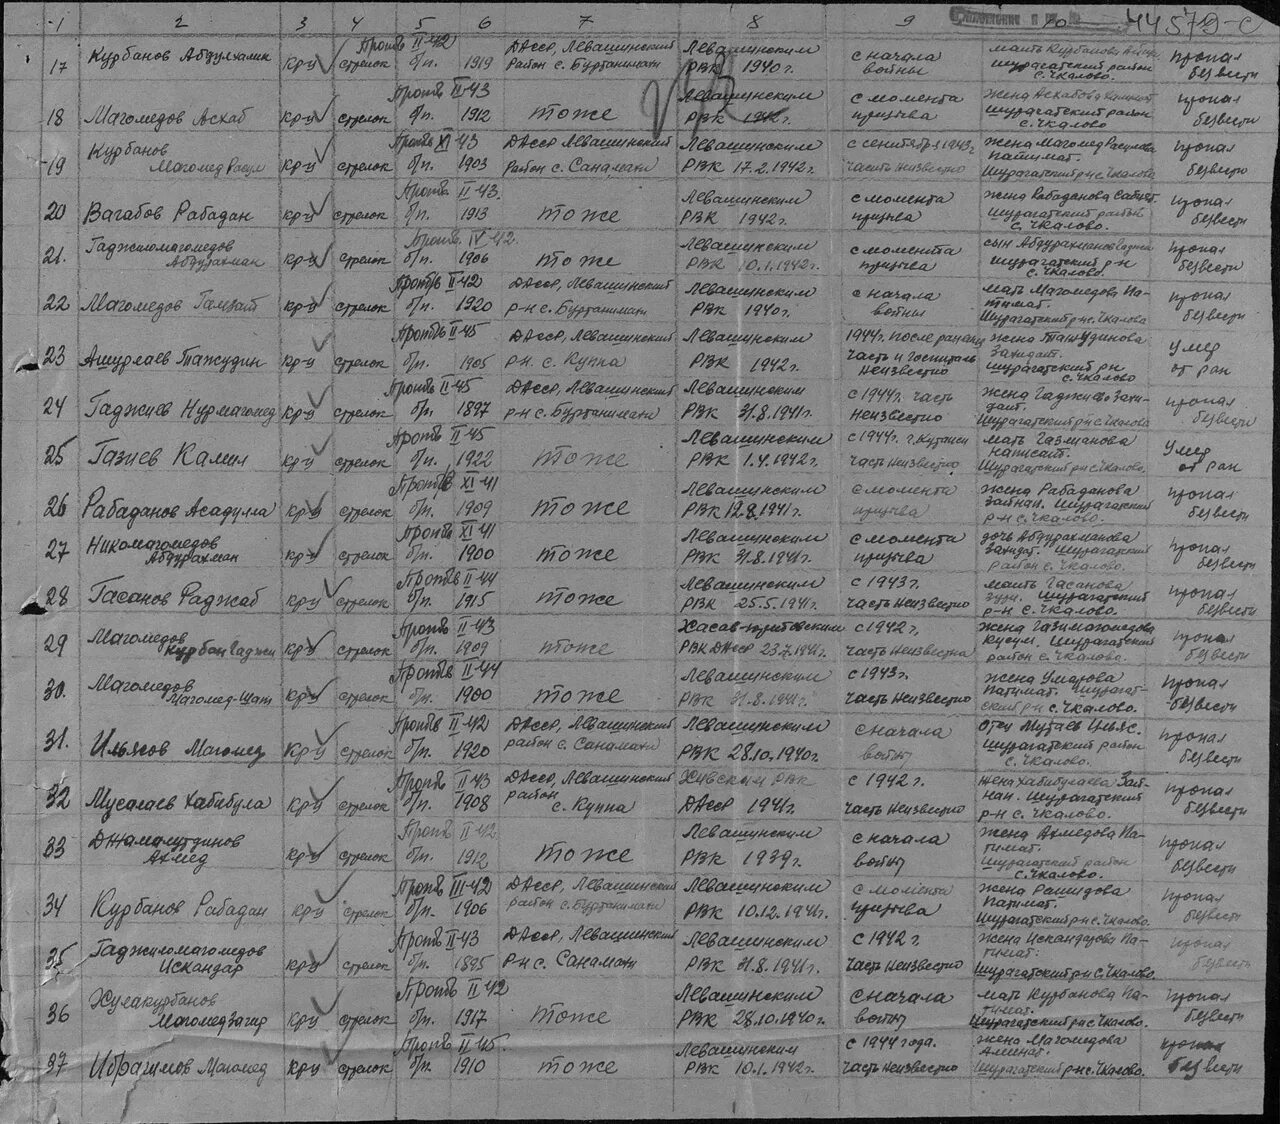 1 2 3 4 5 6 7 8 9 10 44579-с
17 Курбанов Абдулхалик кр-ц стрелок Пропв II-42 б/п. 1919 ДАССР, Левашинский район с. Буртанимахи Левашинским РВК 1940г. с начала войны мать Курбанова Шурагатский район с. Чкалово. пропал безвести
18 Магомедов Асхаб кр-ц стрелок Пропв II-43 б/п. 1912 тоже Левашинским РВК с момента призыва жена Асхабова Шурагатский район с. Чкалово пропал безвести
19 Курбанов Магомед Расул кр-ц стрелок Пропв XI-43 б/п. 1903 ДАССР Левашинский район с. Санамахи Левашинским РВК 17.2.1942г. с сентября 1943г часть неизвестно жена Магомед Расулова Патимат. Шурагатский р-н с. Чкалово пропал безвести
20 Вагабов Рабадан кр-ц стрелок Пропв II-43. б/п. 1913 тоже Левашинским РВК 1942г. с момента призыва жена Рабаданова Шурагатский район с. Чкалово. пропал безвести
21. Гаджиомагомедов Абдурахман кр-ц стрелок Пропв IV-42. б/п. 1906 тоже Левашинским РВК 10.1.1942г. с момента призыва сын Абдурахманов Шурагатский р-н с. Чкалово. пропал безвести
22 Магомедов Гамзат кр-ц стрелок Пропв II-42 б/п. 1920 ДАССР, Левашинский р-н с. Буртанимахи Левашинским РВК 1940г. с начала войны мать Магомедова Патимат. Шурагатский р-н с. Чкалова пропал безвести
23 Ашурлаев Тажудин кр-ц стрелок Пропв II-45 б/п. 1905 ДАССР, Левашинский р-н с. Куппа Левашинским РВК 1942г. 1944г. после ранения часть и госпиталь неизвестно жена Тажудинова Захидат. Шурагатский р-н с. Чкалово умер от ран
24 Гаджиев Нурмагомед кр-ц стрелок Пропв II-45 б/п. 1897 ДАССР, Левашинский р-н с. Буртанимахи Левашинским РВК 31.8.1941г. с 1944г. часть неизвестно жена Гаджиева Захидат. Шурагатский р-н с. Чкалова пропал безвести
25 Газиев Камил кр-ц стрелок Пропв II-45 б/п. 1922 тоже Левашинским РВК 1.4.1942г. с 1944г. г. Кутаиси часть неизвестно мать Газманова Написат. Шурагатский р-н с. Чкалово. Умер от ран
26 Рабаданов Асадулла кр-ц стрелок Пропв XI-41 б/п. 1909 тоже Левашинским РВК 12.8.1941г. с момента призыва жена Рабаданова Зайнап. Шурагатский р-н с. Чкалово. пропал безвести
27 Никомагомедов Абдурахман кр-ц стрелок Пропв XI 41 б/п. 1900 тоже Левашинским РВК 31.8.1941г. с момента призыва дочь Абдурахманова Захидат. Шурагатский район с. Чкалово. пропал безвести
28 Гасанов Раджаб кр-ц стрелок Пропв II-44 б/п. 1915 тоже Левашинским РВК 25.5.1941г. с 1943г. часть неизвестно мать Гасанова Шурагатский р-н с. Чкалово. пропал безвести
29 Магомедов Курбан Гаджи кр-ц стрелок Пропв II-43 б/п. 1909 тоже Хасав-юртовским РВК ДАССР 23.7.1941г. с 1942г, часть неизвестна жена Газимагомедова Кусум. Шурагатский район с. Чкалово. пропал безвести
30. Магомедов Магомед-Шат кр-ц стрелок Пропв II-44 б/п. 1900 тоже Левашинским РВК 31.8.1941г. с 1943г. часть неизвестно жена Умарова Патимат. Шурагатский р-н с. Чкалово. пропал безвести
31. Ильясов Магомед кр-ц стрелок Пропв II-42 б/п. 1920 ДАССР, Левашинский район с. Санамахи Левашинским РВК 28.10.1940г. с начала войны отец Мутаев Ильяс. Шурагатский район с. Чкалово. пропал безвести
32 Мусалаев Хабибула кр-ц стрелок Пропв II-43 б/п. 1908 ДАССР, Левашинский район с. Куппа Хивским РВК ДАССР 1941г. с 1942г. часть неизвестно жена Хабибулаева Зайнап. Шурагатский р-н с. Чкалово. пропал безвести
33 Джамалутдинов Ахмед кр-ц стрелок Пропв II-42 б/п. 1912 тоже Левашинским РВК 1939г. с начала войны жена Ахмедова Патимат. Шурагатский район с. Чкалово. пропал безвести
34 Курбанов Рабадан кр-ц стрелок Пропв III-42 б/п. 1906 ДАССР, Левашинский район с. Буртанимахи Левашинским РВК 10.12.1941г. с момента призыва жена Рашидова Патимат. Шурагатский р-н с. Чкалово. пропал безвести
35 Гаджиомагомедов Искандар кр-ц стрелок Пропв II-43 б/п. 1895 ДАССР, Левашинский р-н с. Санамахи Левашинским РВК 31.8.1941г. с 1942г. часть неизвестно жена Искандерова Патимат. Шурагатский р-н с. Чкалово. пропал безвести
36 Жулакурбанов Магомедзагир кр-ц стрелок Пропв II 42 б/п. 1917 тоже Левашинским РВК 28.10.1940г. с начала войны мать Курбанова Патимат. Шурагатский р-н с. Чкалово. пропал безвести
37 Ибрагимов Магомед кр-ц стрелок Пропв II-45. б/п. 1910 тоже Левашинским РВК 10.1.1942г. с 1944 года. часть неизвестно жена Магомедова Аминат. Шурагатский р-н с. Чкалово. пропал безвести